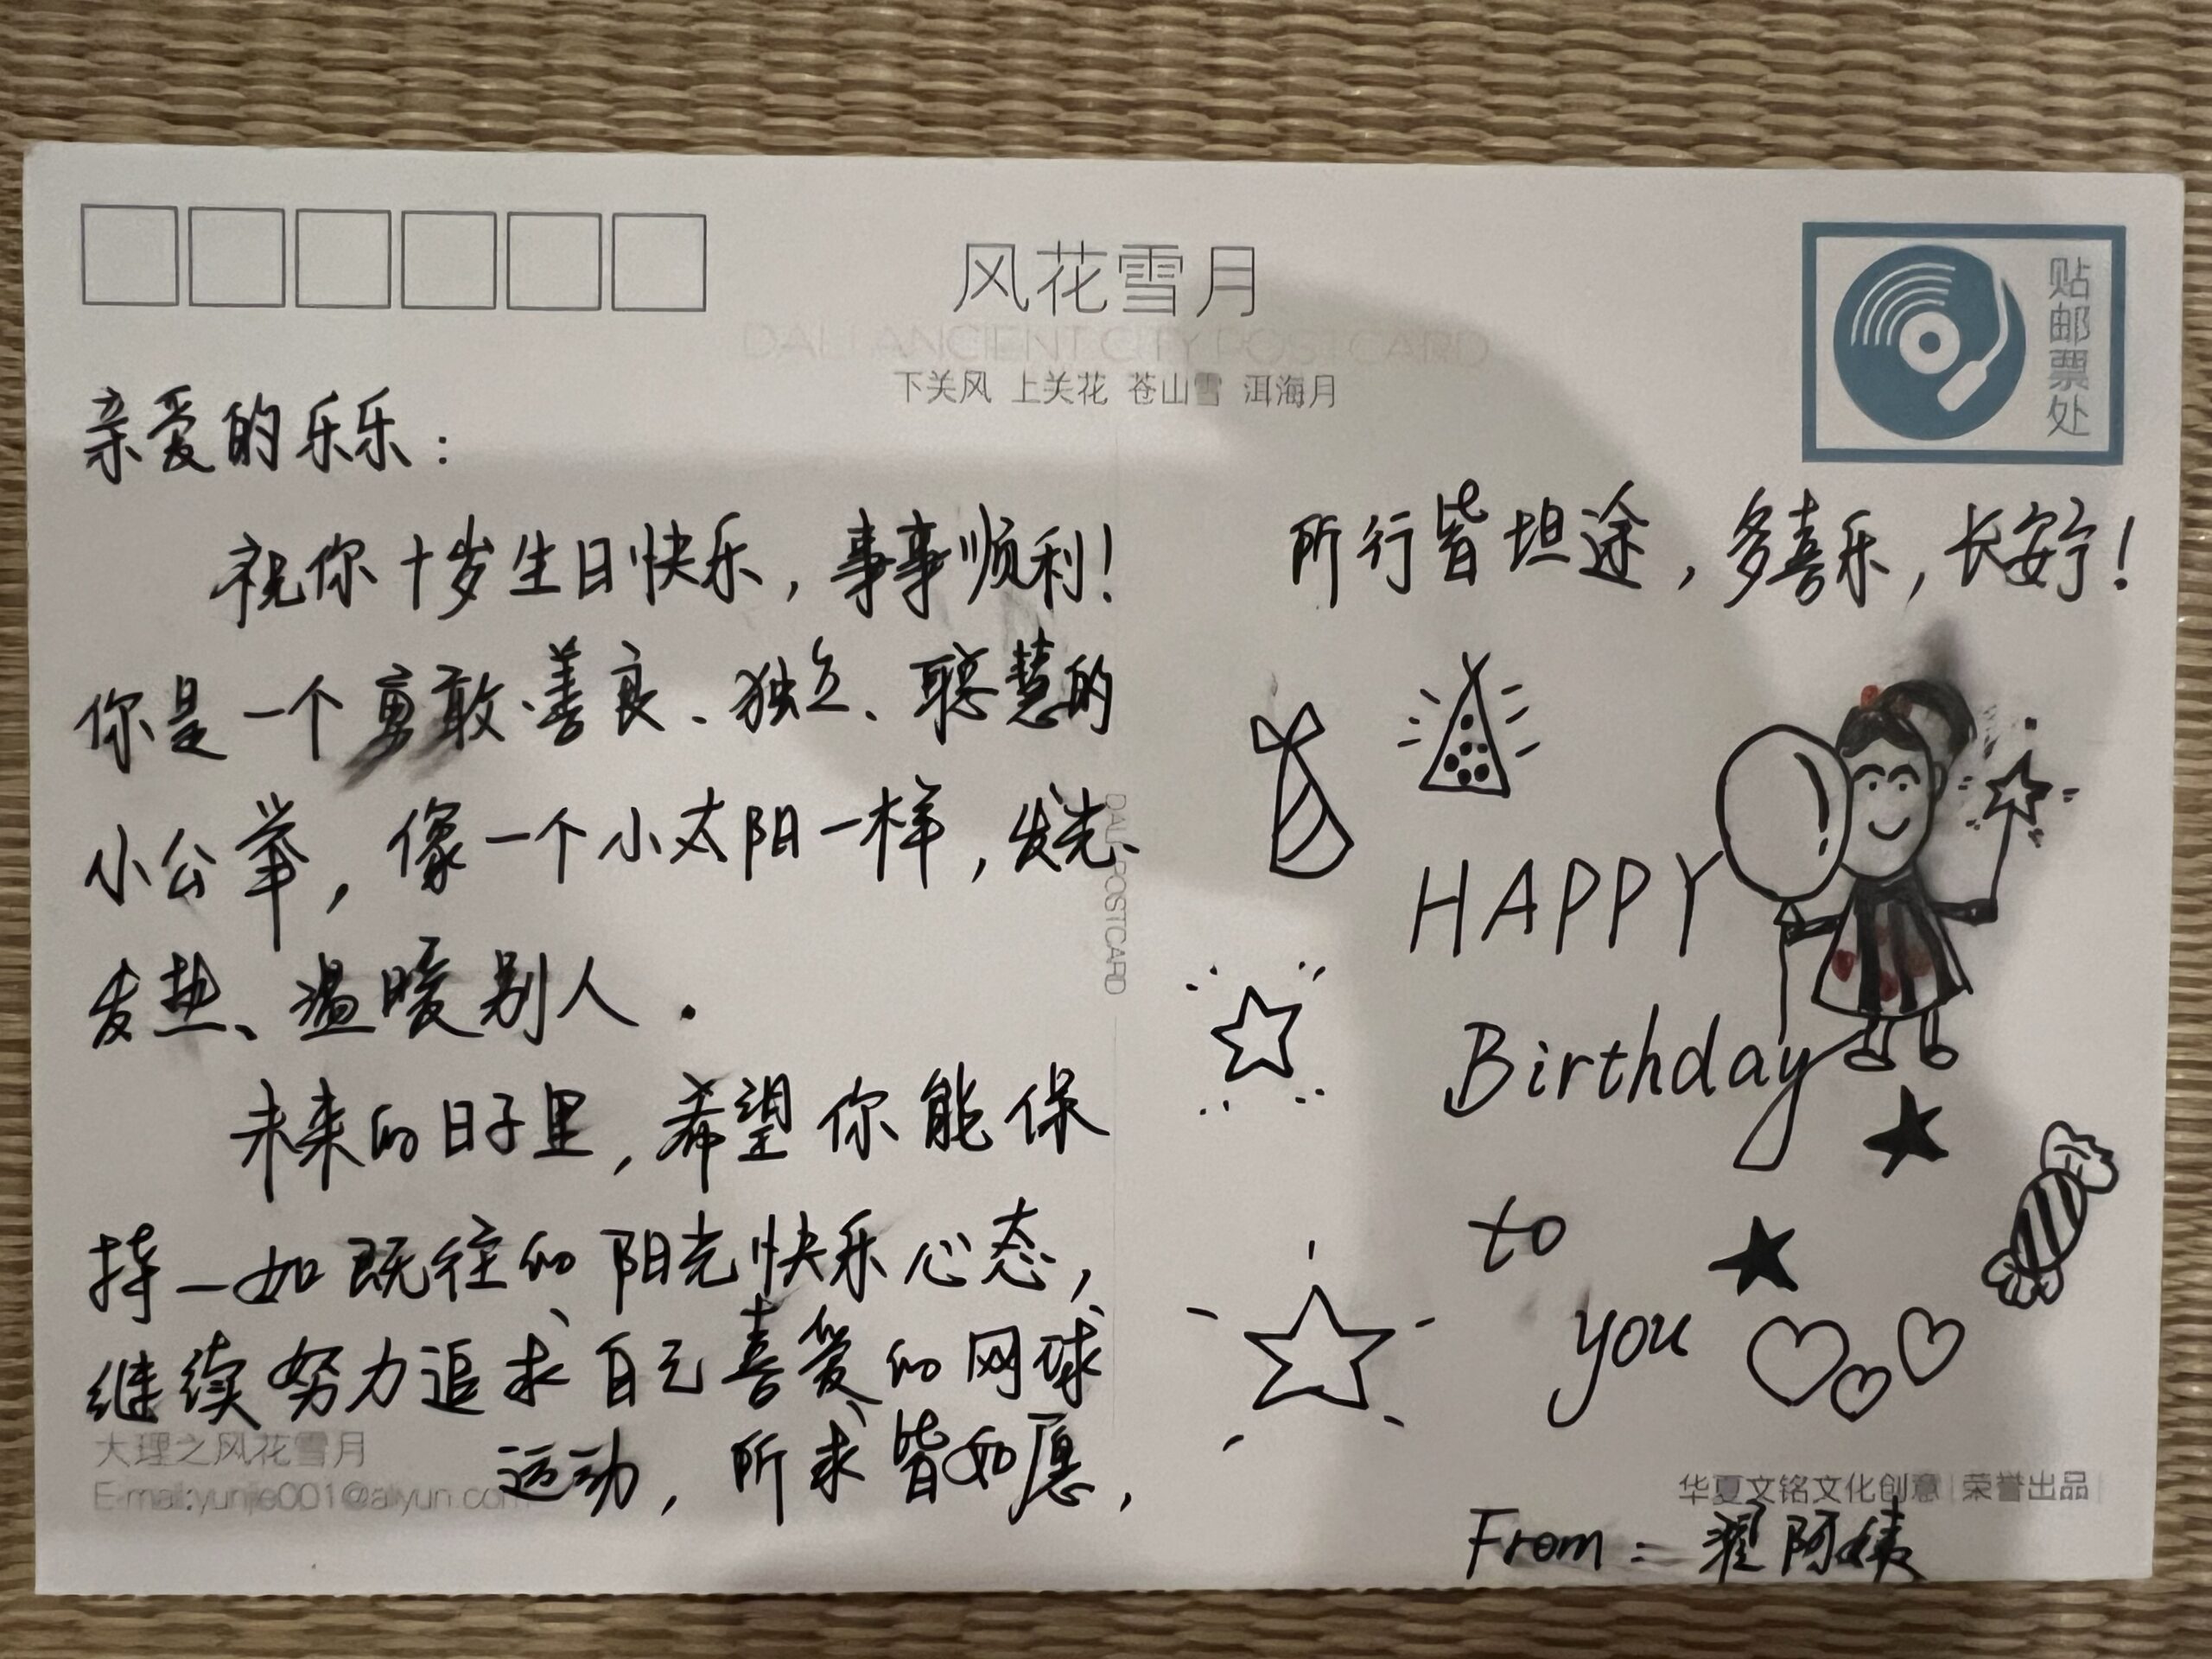 风花雪月
DALI ANCIENT CITY POSTCARD
下关风 上关花 苍山雪 洱海月
贴邮票处
亲爱的乐乐：
祝你十岁生日快乐，事事顺利！
你是一个勇敢、善良、独立、聪慧的
小公举，像一个小太阳一样，发光、
发热、温暖别人.
未来的日子里，希望你能保
持一如既往的阳光快乐心态，
继续努力追求自己喜爱的网球
运动，所求皆如愿，
大理之风花雪月
E-mail:yunjie001@aliyun.com
DALI POSTCARD
所行皆坦途，多喜乐，长安宁！
HAPPY
Birthday
to
you
华夏文铭文化创意|荣誉出品|
From：翟阿姨